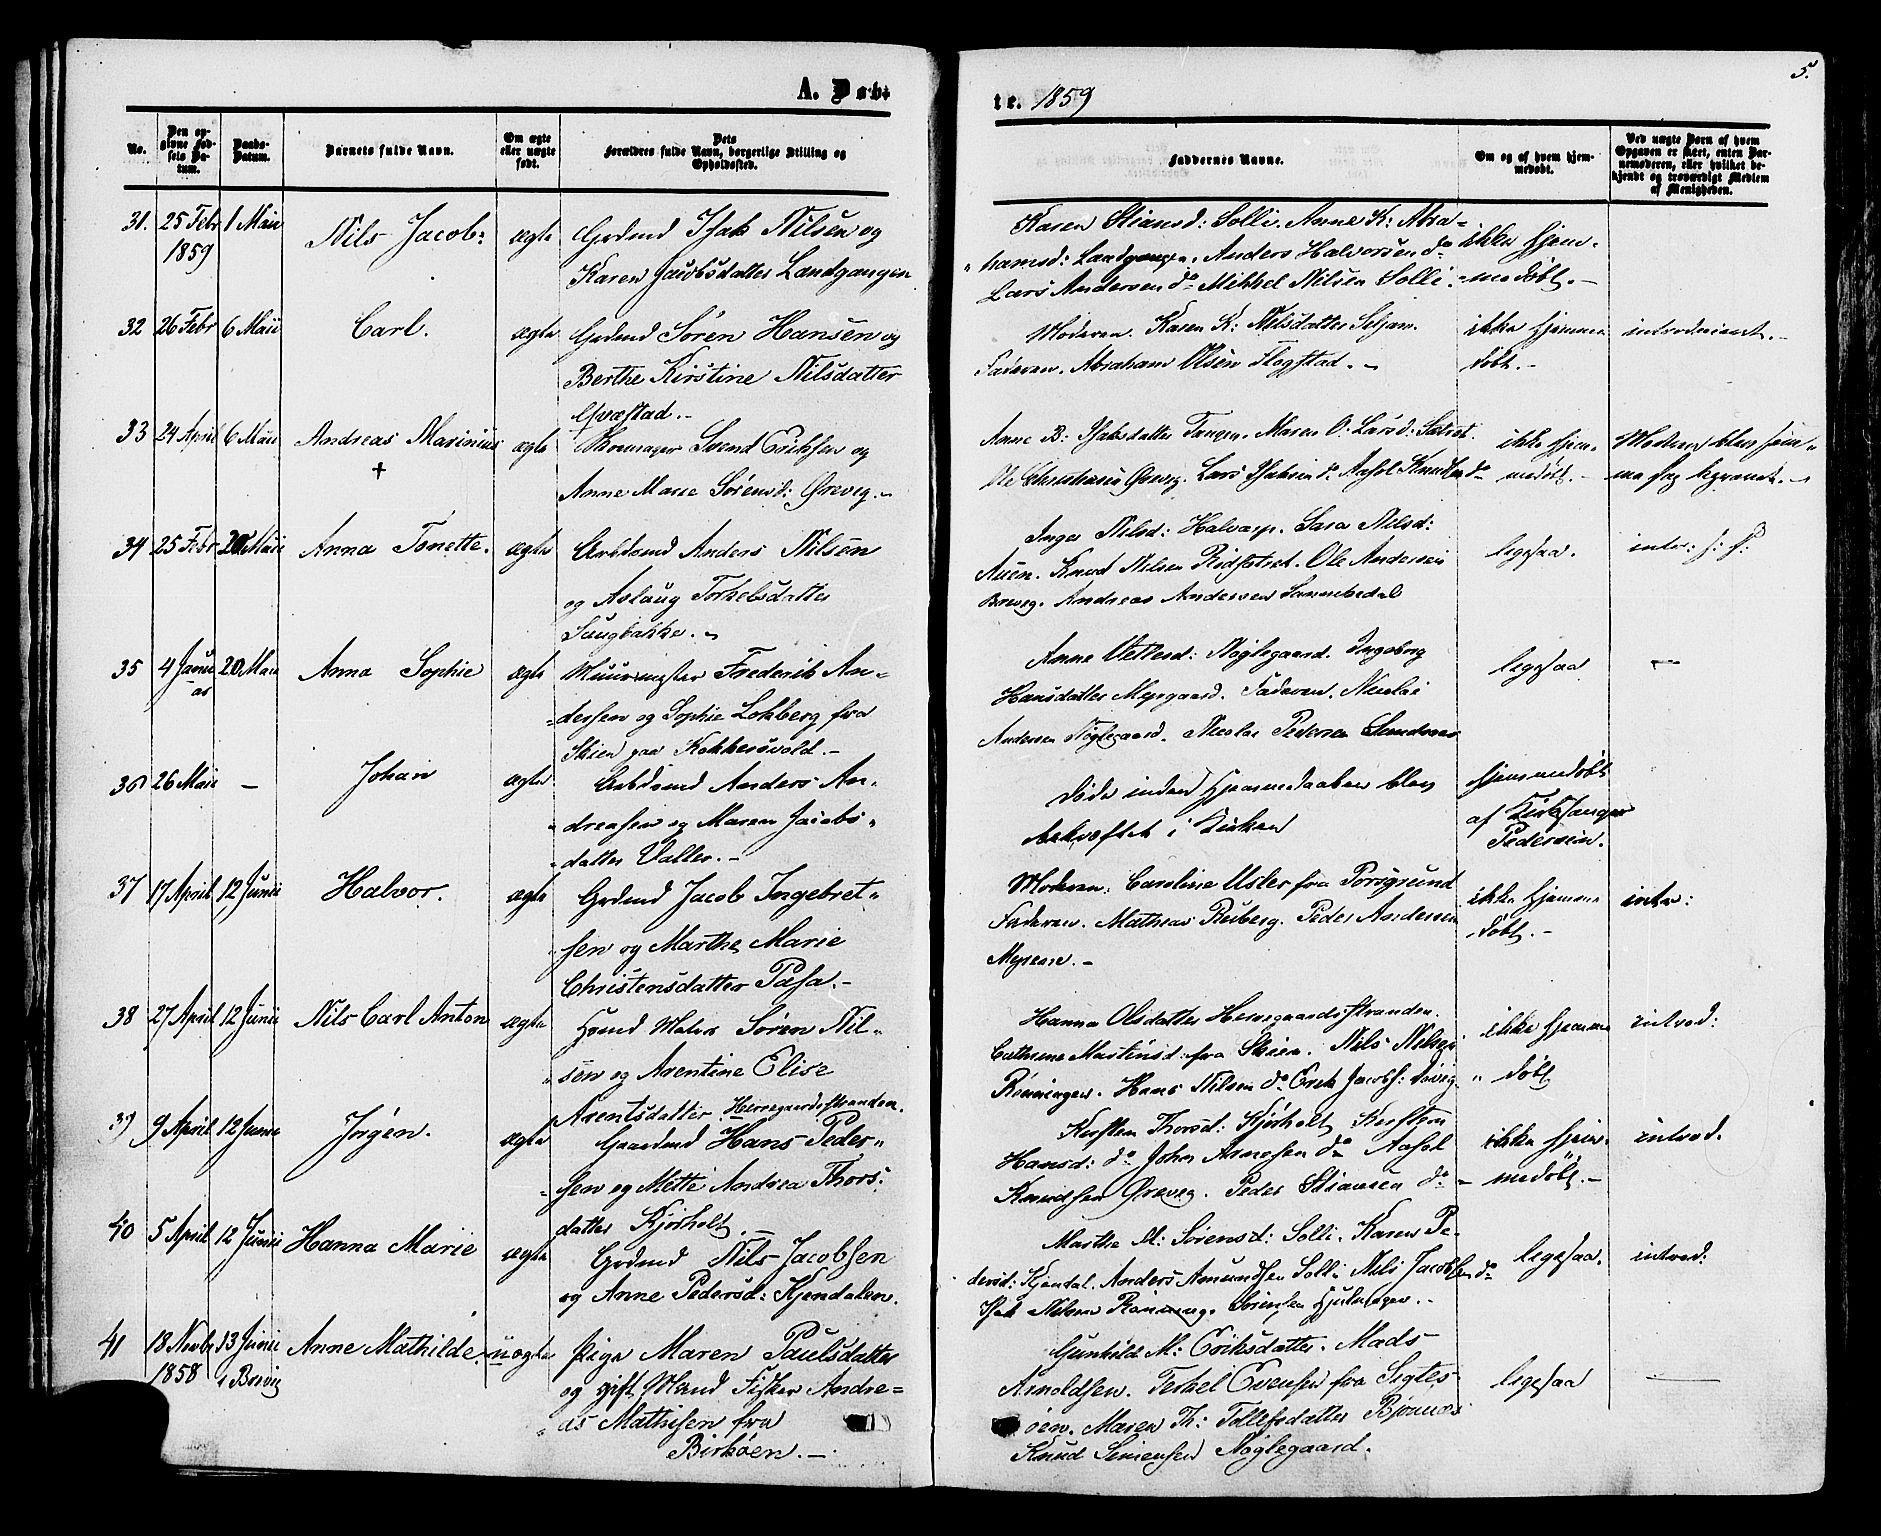 5.
A. Døbte. 1859
No.
Den opgivne Fødsels Datum.
Daabs-Datum.
Barnets fulde Navn.
Om ægte eller uægte født.
Dets Forældres fulde Navn, borgerlige Stilling og Opholdssted.
Faddernes Navne.
Om og af hvem hjemmedøbt.
Ved uægte Børn af hvem Opgaven er skeet, enten Barnemoderen, eller hvilket bekjendt og troværdigt Medlem af Menigheden.
31. 25 Febr 1859 1 Maii Nils Jacob: ægte Grdmd Isak Nilsen og
Karen Jacobsdatter Landgangen
Karen Stiansd: Solli. Anne K: Abra-
hamsd: Landgangen. Anders Halvorsen do
Lars Andersen do Mikkel Nilsen Solli.
ikke hjem-
medøbt.-
32 26 Febr 6 Maii Carl. ægte Grdmd Sören Hansen og
Berthe Kirstine Nilsdatter
Moderen. Karen K: Nilsdatter
Faderen. Abraham Olsen Flogstad.
ikke hjemme
døbt.-
introduceret.-
33 24 April 6 Maii Andreas Marinius ægte Svend Eriksen og
†
Anne Marie Sörensd: Örevig.-
Anne B: Isaksdatter Tangen. Maren O: Larsd:
Ole Christensen Örevig. Lars Isaksen do Aslak Knudsen do
ikke hjem-
medøbt.-
Moderen blev hjem-
34 25 Febr 20 Maii Anna Tonette. ægte Arbdsmd Anders Nilsen
og Aslaug Torkelsdatter
Inger Nilsd: Halvarp. Sara Nilsd:
Auen. Knud Nilsen Ole Andersen
Brevig. Andreas Andersen Sannikedal
ligesaa.
35 4 Januar 20 Maii Anna Sophie ægte Muurmester Frederik An-
dersen og Sophie Lokberg fra
Skien paa Kokkersvold.-
Anne Nøglegaard. Ingeborg
Hansdatter Myrgaard. Faderen. Nicolai
Andersen Nøglegaard. Nicolai Pedersen
ligesaa
-
36 26 Maii - Johan ægte Arbdsmd Anders An-
dreasen og Maren Jacobs-
datter Valler.-
døde inden Hjemmedaaben blev
bekræftet i Kirken
hjemmedøbt
af Kirkesanger
Pedersen.
37 17 April 12 Junii Halvor. ægte Grdmd Jacob Ingebret-
sen og Marthe Marie
Christensdatter Pasa.-
Moderen: Caroline Usler fra Porsgrund
Faderen. Mathias Reiberg. Peder Andersen
Myrene.-
ikke hjemme
døbt.-
intr:
38 27 April 12 Junii Nils Carl Anton ægte Hsmd Sören Nil-
sen og Arentine Elise
Arentsdatter Herregaardsstranden.
Hanna Olsdatter Herregaardsstranden.
Cathrine Martinsd: fra Skien. Nils Nilsen
Rönningen. Hans Nilsen do Erik Jacobs:
ikke hjemme
døbt
introd:
39 9 April 12 Junii Jörgen. ægte Gaardmd Hans Peder-
sen og Mette Andrea Thors-
datter Kjörholt
Kirsten Thorsd: Kjörholt Kirsten
Hansd: do John Arnesen do Aslak
Knudsen Örevig. Peder Stiansen do
ikke hjem-
medøbt.-
introd.
40 5 April 12 Junii Hanna Marie ægte Grdmd Nils Jacobsen
og Anne Pedersd: Kjendalen.
Marthe M: Sörensd: Solli. Karen Pe-
dersd: Kjendal. Anders Amundsen Solli Nils Jacobsen do
Isak Nilsen Rönning.
ligesaa.
introd:
41 18 Novbr 1858 13 Junii i Brevig Anne Mathilde. uægte Pige Maren Paulsdatter
og gift Mand Fisker Andre-
as Mathisen fra
Birköen.-
Gunhild M: Eriksdatter. Mads
Arnoldsen. Terkel Evensen fra Sigtes-
öen. Maren Th: Tollefsdatter Bjønnes
Knud Simensen Nöglegaard.
ligesaa